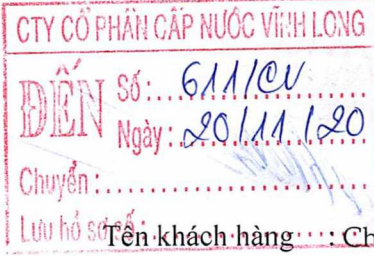 CTY CỔ PHẦN CẤP NƯỚC VĨNH LONG
ĐẾN Số: 611/CV
Ngày: 20/11/20
Chuyển:
Lưu hồ sơ số:
Tên khách hàng : Ch